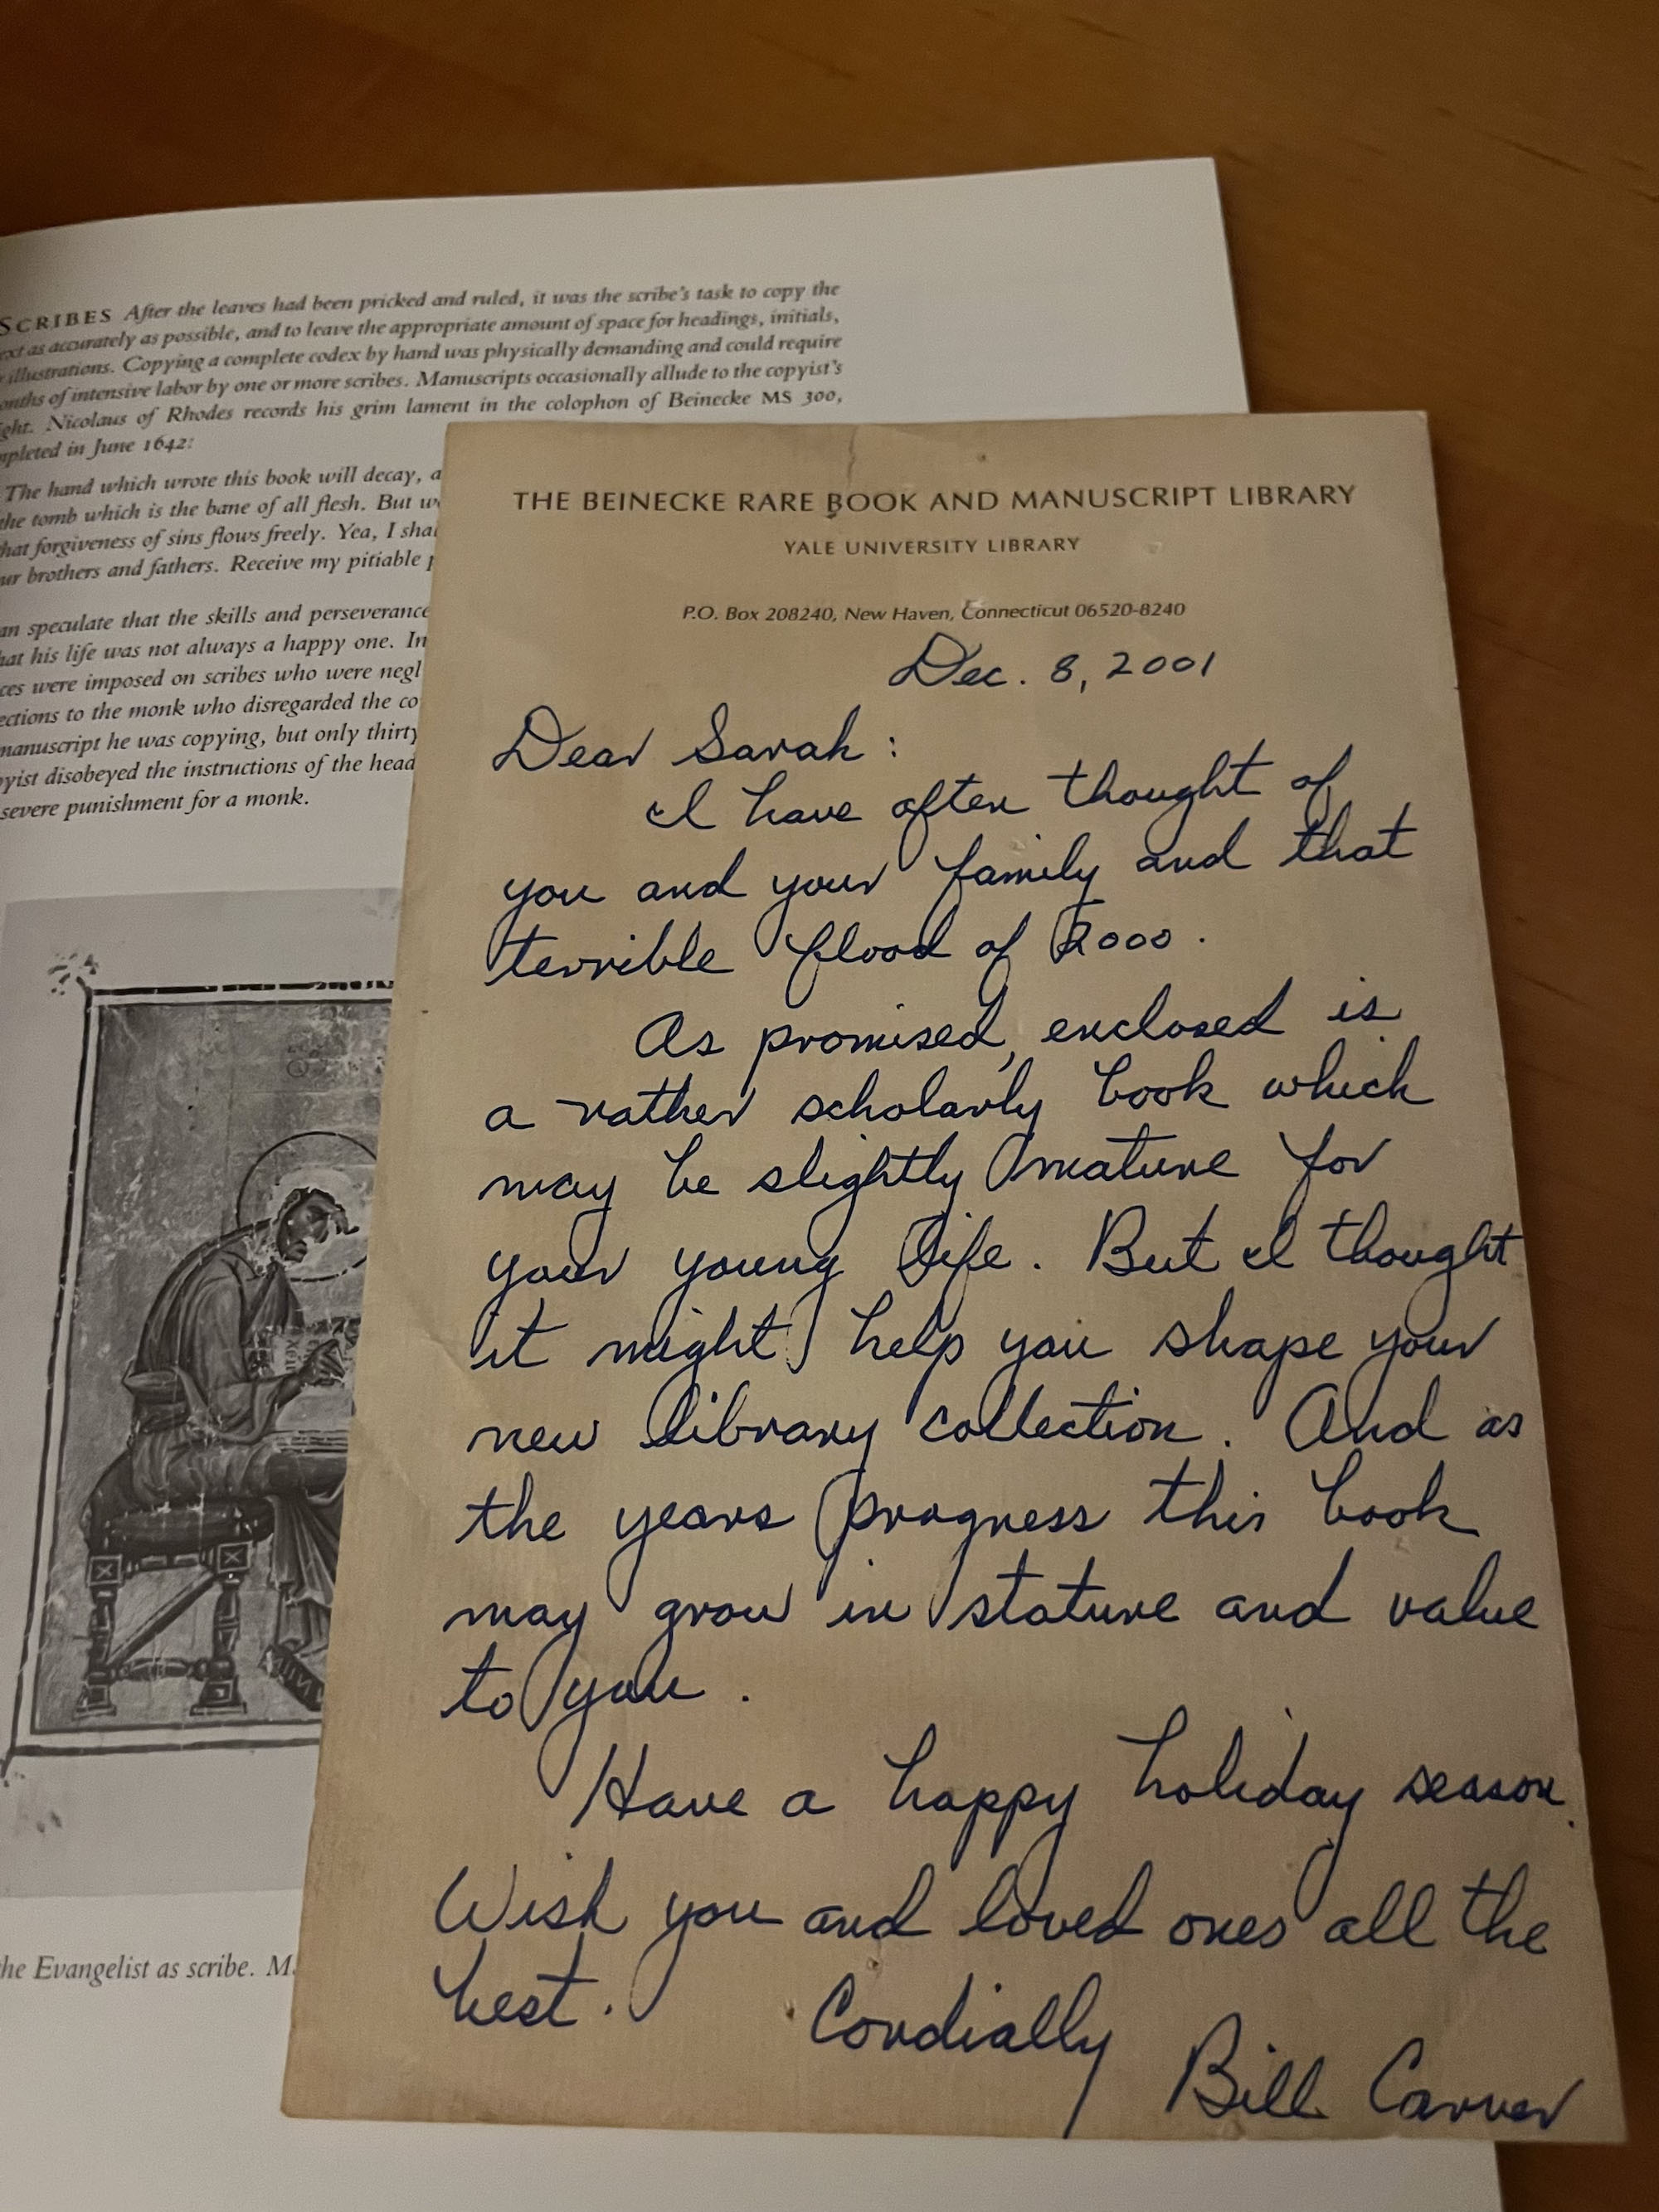 SCRIBES After the leaves had been pricked and ruled, it was the scribe's task to copy the
ext as accurately as possible, and to leave the appropriate amount of space for headings, initials,
illustrations. Copying a complete codex by hand was physically demanding and could require
onths of intensive labor by one or more scribes. Manuscripts occasionally allude to the copyist's
ght. Nicolaus of Rhodes records his grim lament in the colophon of Beinecke MS 300,
mpleted in June 1642:
The hand which wrote this book will decay, a
the tomb which is the bane of all flesh. But w
hat forgiveness of sins flows freely. Yea, I shal
ur brothers and fathers. Receive my pitiable p
an speculate that the skills and perseverance
hat his life was not always a happy one. In
ces were imposed on scribes who were negl
ections to the monk who disregarded the co
manuscript he was copying, but only thirty
pyist disobeyed the instructions of the head
severe punishment for a monk.
he Evangelist as scribe. M
THE BEINECKE RARE BOOK AND MANUSCRIPT LIBRARY
YALE UNIVERSITY LIBRARY
P.O. Box 208240, New Haven, Connecticut 06520-8240
Dec. 8, 2001
Dear Sarah:
I have often thought of
you and your family and that
terrible flood of 2000.
As promised, enclosed is
a rather scholarly book which
may be slightly mature for
your young life. But I thought
it might help you shape your
new library collection. And as
the years progress this book
may grow in stature and value
to you.
Have a happy holiday season.
Wish you and loved ones all the
best.
Cordially
Bill Carver